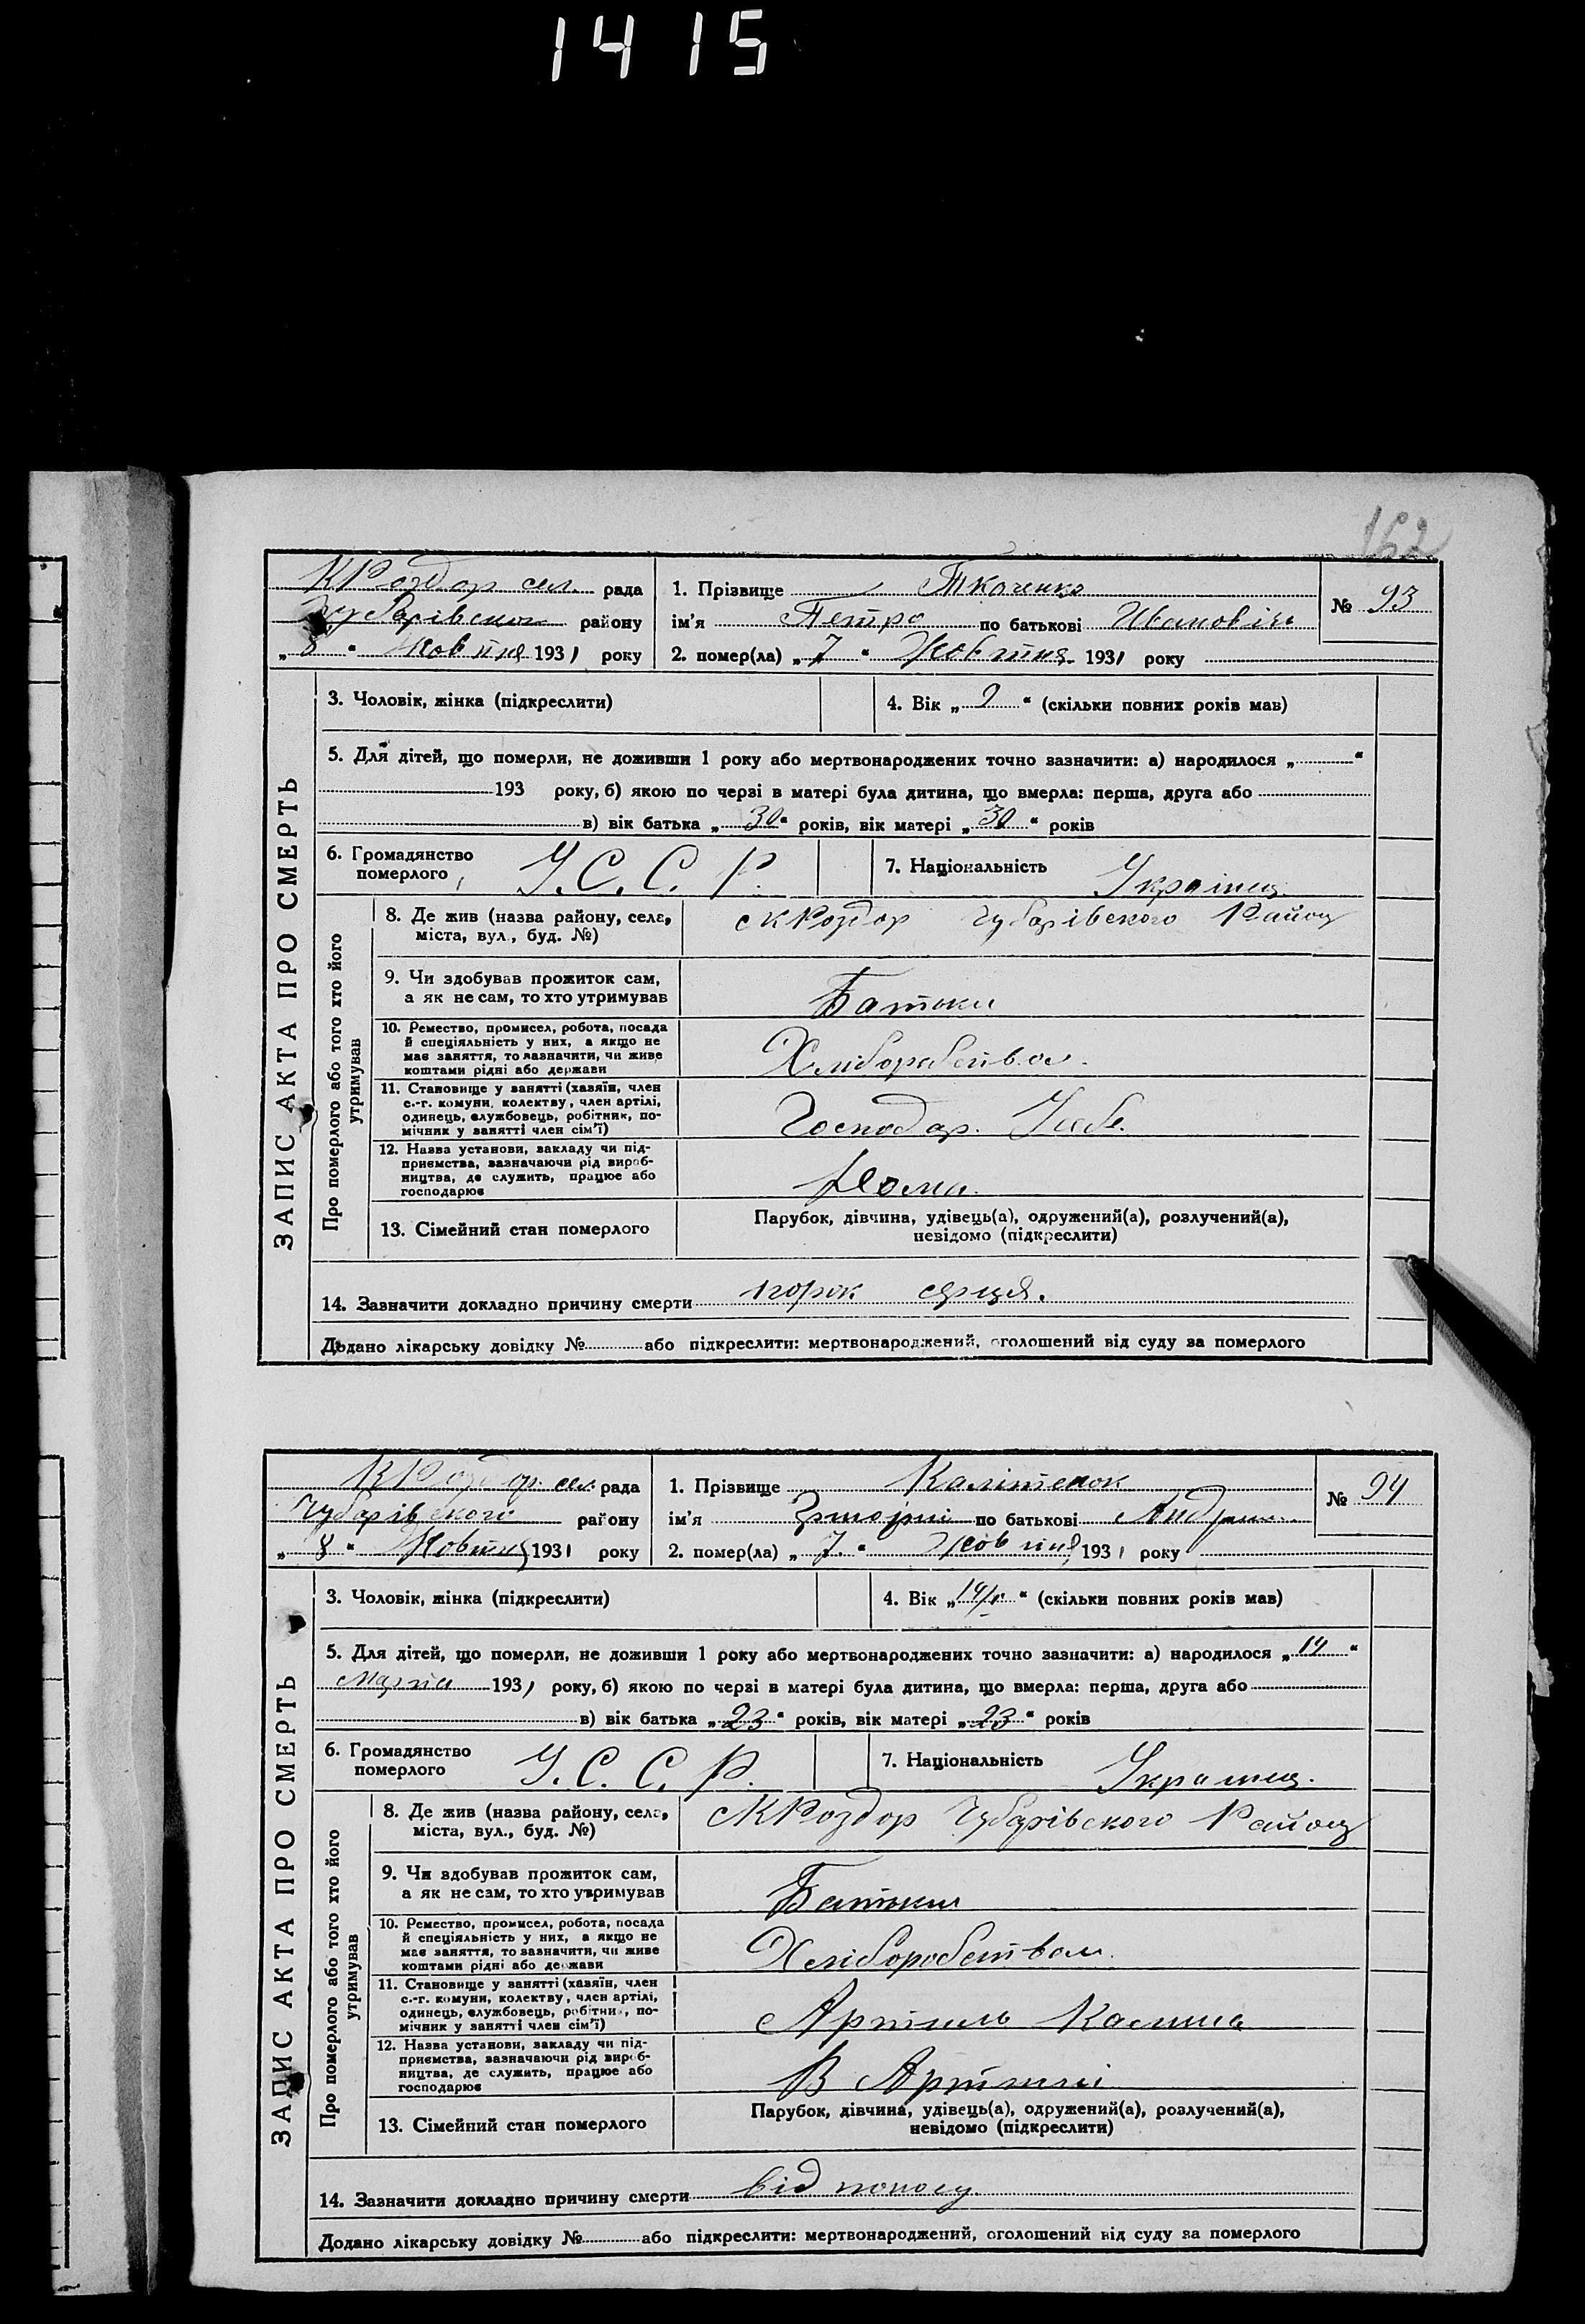 1415
162
К Роздор сел. рада
Чубарівского району
„ 8 “ Жовтня 1931 року
1. Прізвище Ткаченко
№ 93
ім'я Петро по батькові Іванович
2. помер(ла) „ 7 “ Жовтня 1931 року
ЗАПИС АКТА ПРО СМЕРТЬ
3. Чоловік, жінка (підкреслити)
4. Вік „ 9 “ (скільки повних років мав)
5. Для дітей, що померли, не доживши 1 року або мертвонароджених точно зазначити: а) народилося „ “
193 року, б) якою по черзі в матері була дитина, що вмерла: перша, друга або
в) вік батька „ 30 “ років, вік матері „ 30 “ років
6. Громадянство
померлого У. С. С. Р.
7. Національність Українец
Про померлого або того хто його
утримував
8. Де жив (назва району, села,
міста, вул., буд. №)
с К Роздор Чубарівского Району
9. Чи здобував прожиток сам,
а як не сам, то хто утримував
Батьки
10. Ремество, промисел, робота, посада
й спеціяльність у них, а якщо не
має заняття, то зазначити, чи живе
коштами рідні або держави
Хліборобством
11. Становище у занятті (хазяїн, член
с.-г. комуни, колектву, член артілі,
одинець, службовець, робітник, по-
мічник у занятті член сім'ї)
Господар.
12. Назва установи, закладу чи під-
приємства, зазначаючи рід вироб-
ництва, де служить, працює або
господарює
Дома.
13. Сімейний стан померлого
Парубок, дівчина, удівець(а), одружений(а), розлучений(а),
невідомо (підкреслити)
14. Зазначити докладно причину смерти порок серця.
Додано лікарську довідку № або підкреслити: мертвонароджений, оголошений від суду за померлого
К Роздор. сел. рада
Чубарівского району
„ 8 “ Жовтня 1931 року
1. Прізвище Калітенок
№ 94
ім'я по батькові
2. помер(ла) „ 7. “ Жовтня 1931 року
ЗАПИС АКТА ПРО СМЕРТЬ
3. Чоловік, жінка (підкреслити)
4. Вік „ “ (скільки повних років мав)
5. Для дітей, що померли, не доживши 1 року або мертвонароджених точно зазначити: а) народилося „ 14 “
Марта 1931 року, б) якою по черзі в матері була дитина, що вмерла: перша, друга або
в) вік батька „ 23 “ років, вік матері „ 23 “ років
6. Громадянство
померлого У. С. С. Р.
7. Національність Українец.
Про померлого або того хто його
утримував
8. Де жив (назва району, села,
міста, вул., буд. №)
с К Роздор Чубарівского Району
9. Чи здобував прожиток сам,
а як не сам, то хто утримував
Батьки
10. Ремество, промисел, робота, посада
й спеціяльність у них, а якщо не
має заняття, то зазначити, чи живе
коштами рідні або держави
Хліборобством.
11. Становище у занятті (хазяїн, член
с.-г. комуни, колектву, член артілі,
одинець, службовець, робітник, по-
мічник у занятті член сім'ї)
Артиль
12. Назва установи, закладу чи під-
приємства, зазначаючи рід вироб-
ництва, де служить, працює або
господарює
В Артилі
13. Сімейний стан померлого
Парубок, дівчина, удівець(а), одружений(а), розлучений(а),
невідомо (підкреслити)
14. Зазначити докладно причину смерти від поносу
Додано лікарську довідку № або підкреслити: мертвонароджений, оголошений від суду за померлого